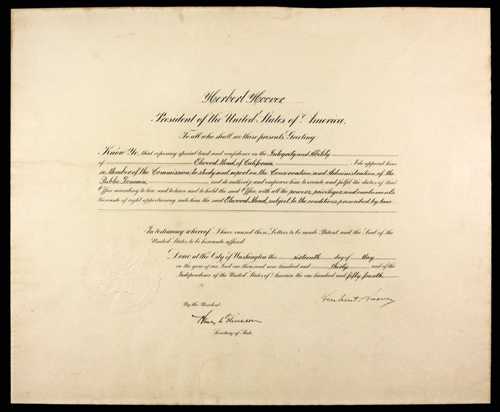 Herbert Hoover
President of the United States of America,
To all who shall see these presents, Greeting:
Know Ye, that reposing special trust and confidence in the Integrity and Ability
of Elwood Mead, of California, I do appoint him
a Member of the Commission to study and report on the Conservation and Administration of the
Public Domain, and do authorize and empower him to execute and fulfil the duties of that
Office according to law, and to have and to hold the said Office, with all the powers, privileges and emoluments
thereunto of right appertaining unto him the said Elwood Mead, subject to the conditions prescribed by law.
In testimony whereof, I have caused these Letters to be made Patent and the Seal of the
United States to be hereunto affixed.
Done at the City of Washington this sixteenth day of May
in the year of our Lord one thousand nine hundred and thirty and of the
Independence of the United States of America the one hundred and fifty-fourth.
Herbert Hoover
By the President:
Henry L Stimson
Secretary of State.